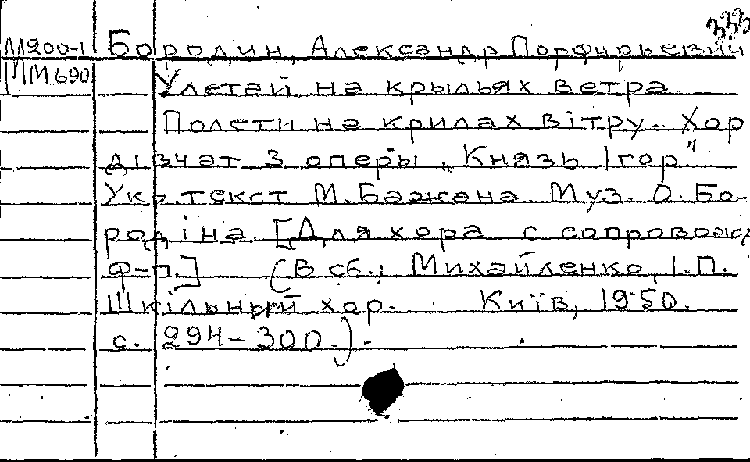 333
М200-1 Бородин, Александр Порфирьевич
ММ690 Улетай на крыльях ветра
Полети на крилах вітру. Хор
дівчат з оперы „Князь Ігор"
Укр. текст М. Бажана. Муз. О. Бо-
родіна. [Для хора с сопровожд
ф-п.] (В сб.: Михайленко, І.П.
Шкільный хор. Київ, 1950.
с. 294-300.).